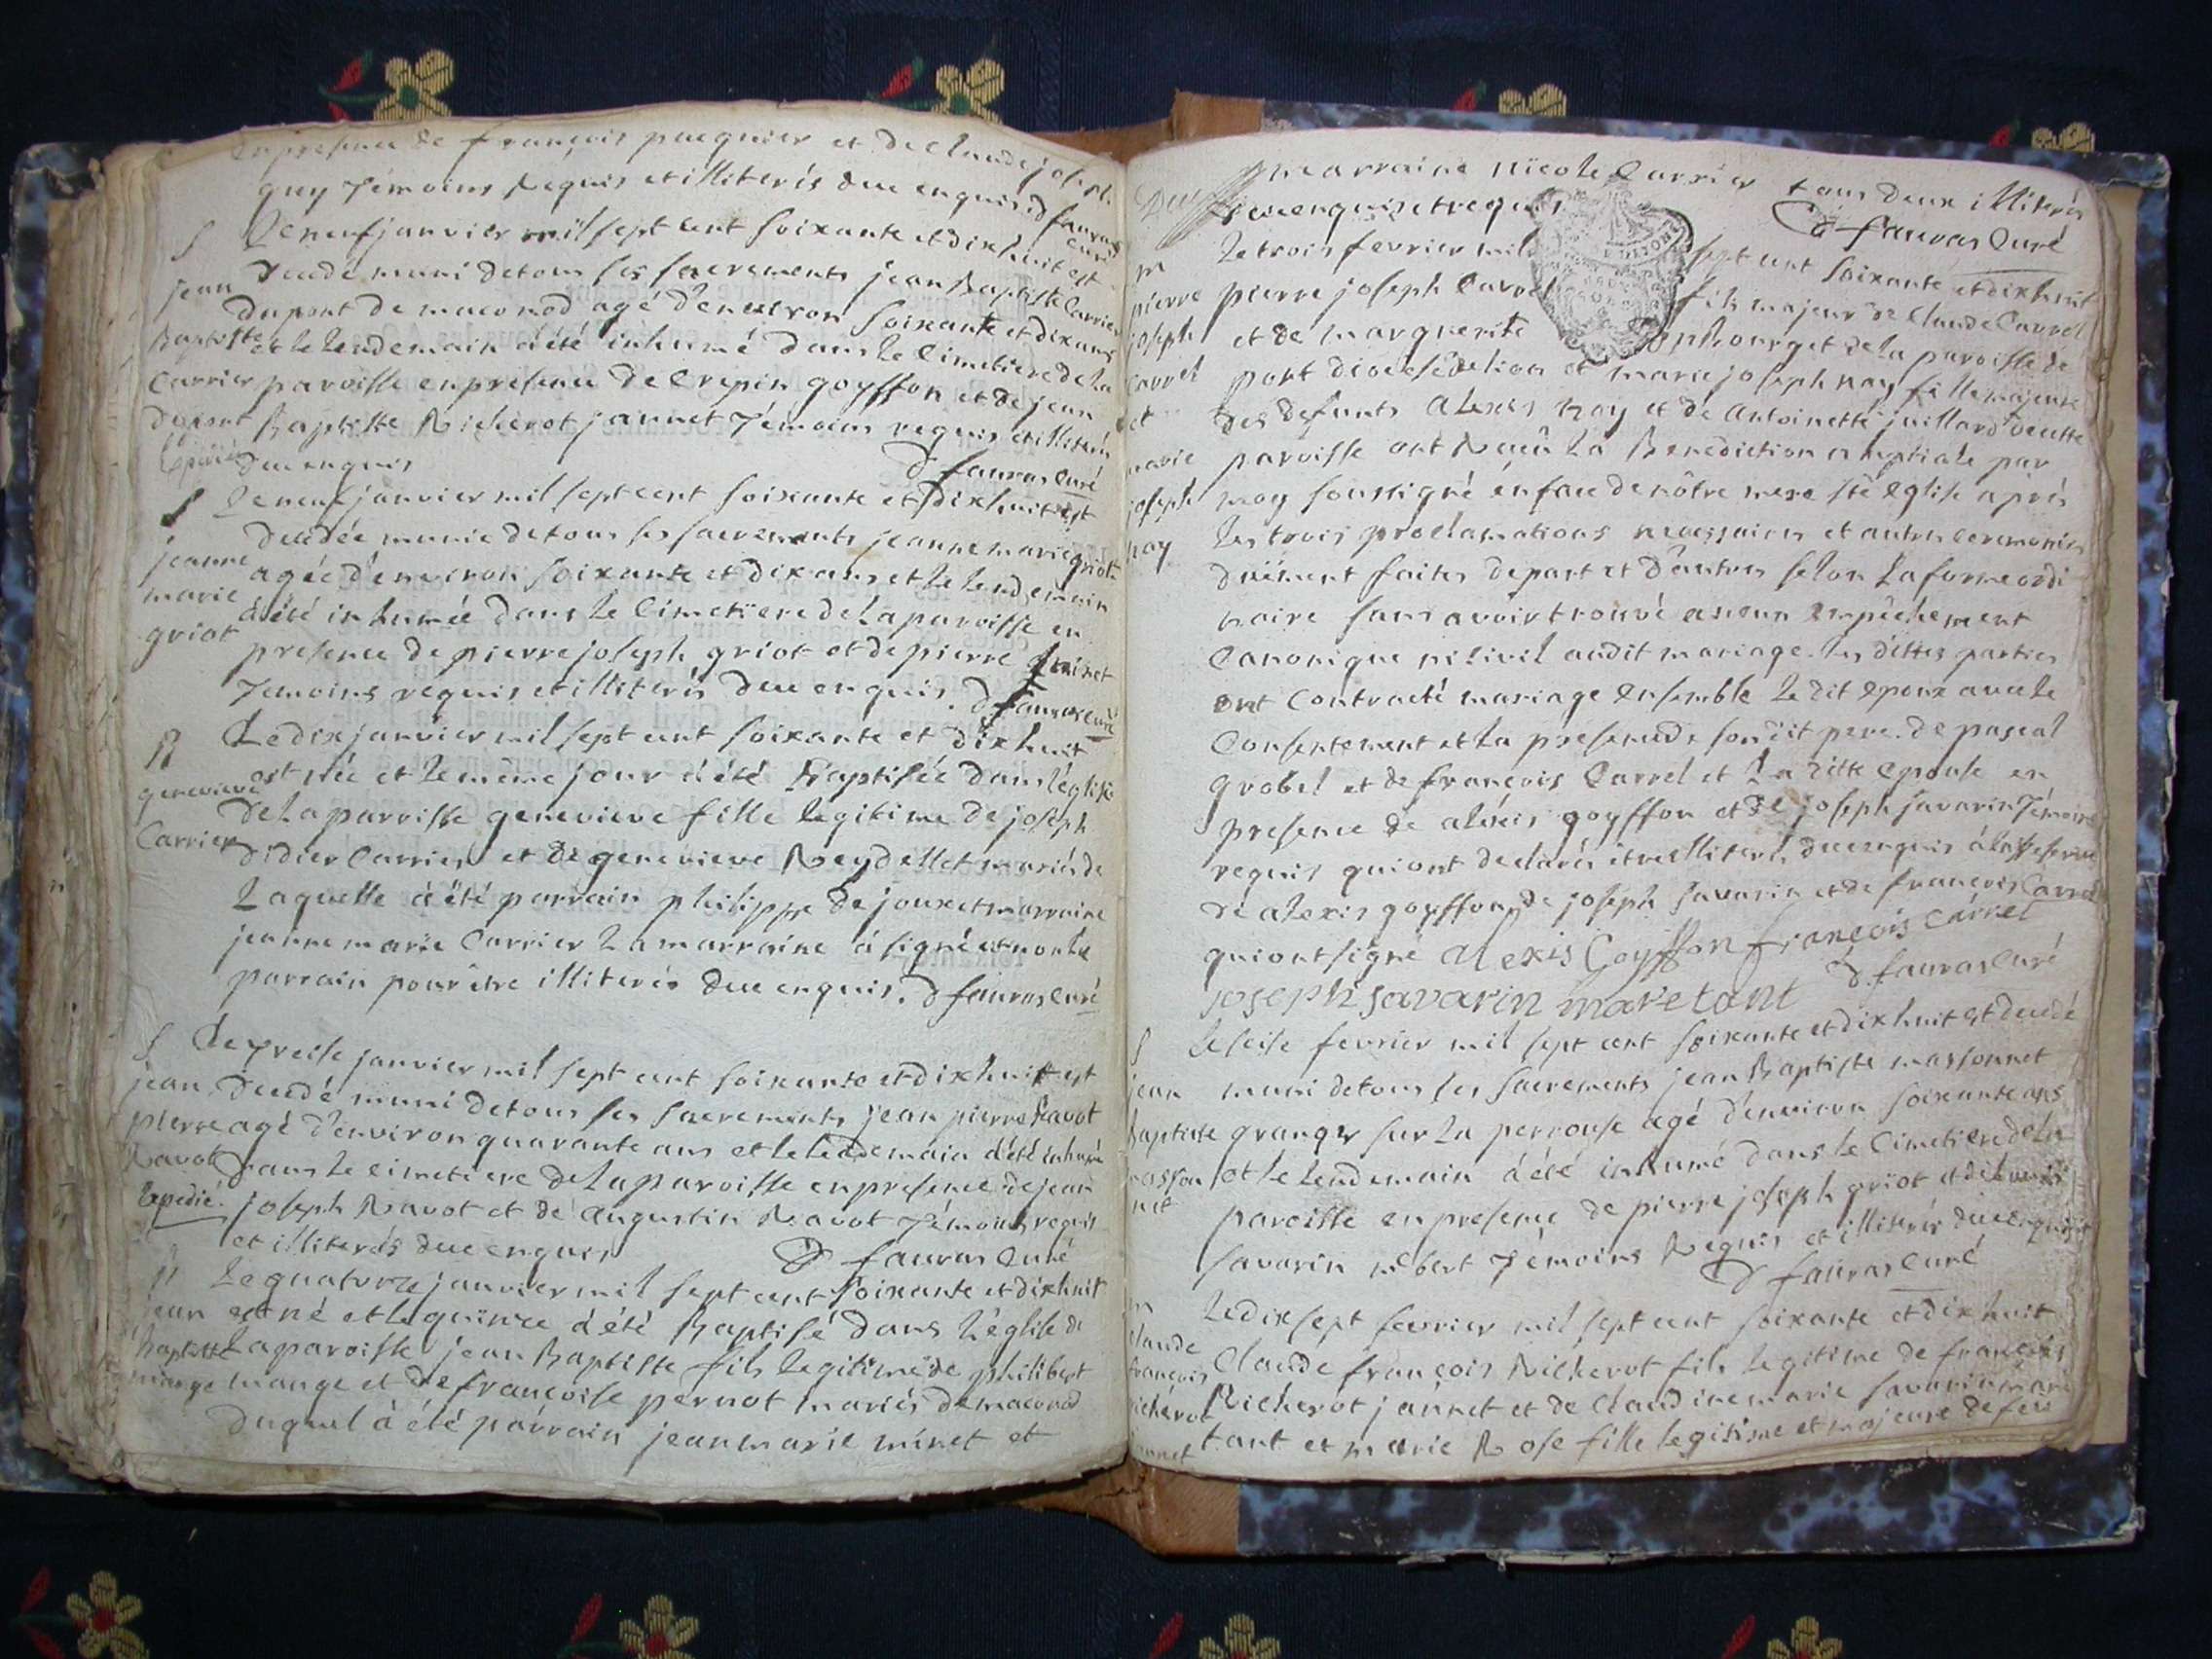 en presence de françois pacquier et de claude joseph
guy témoins requis et illiterés due enquis. d fauras curé
S Le neuf janvier mil sept cent soixante et dix huit est
jean decedé muni de tous ses sacrements jean Baptiste Carrier
dupont de maconod agé d'environ soixante et dix ans
Baptiste et le lendemain a été inhumé dans le Cimetiere de la
Carrier paroisse en presence de Crepin goyffon et de jean
dupont Baptiste Richerot jannet témoins requis et illiterés
Expedié due enquis d fauras curé
S Le neuf janvier mil sept cent soixante et dix huit est
decedée munie de tous ses sacrements jeanne marie griot
jeanne agée d'environ soixante et dix ans et le lendemain
marie a été inhumée dans le Cimetiere de la paroisse en
griot presence de pierre joseph griot et de pierre
temoins requis et illiterés due enquis. d fauras curé
N Le dix janvier mil sept cent soixante et dix huit
est née et le meme jour a été Baptisée dans l'eglise
genevieve de la paroisse genevieve fille legitime de joseph
Carrier didier Carrier et de genevieve Reydellet mariés de
Laquelle a été parrain philippe de joux et marraine
jeanne marie Carrier La marraine a signé et non le
parrain pour être illiterés due enquis. d fauras curé
S Le treise janvier mil sept cent soixante et dix huit est
jean decedé muni de tous ses sacrements jean pierre Ravot
pierre agé d'environ quarante ans et le lendemain a été inhumé
Ravot dans le cimetiere de la paroisse en presence de jean
Expedié. joseph Ravot et de augustin Ravot témoins requis
et illiterés due enquis d fauras Curé
N Le quatorze janvier mil sept cent soixante et dix huit
jean est né et le quinze a été Baptisé dans l'église de
Baptiste La paroisse jean Baptiste fils legitime de philibert
mange mange et de françoise pernot mariés de maconod
Duquel a été parrain jean marie minet et
marraine nicole Carrier tous deux illiterés
due enquis et requis d fauras Curé
m Le trois fevrier mil sept cent soixante et dix huit
pierre pierre joseph Carrel fils majeur de Claude Carrel
joseph et de marguerite de la paroisse de
Carrel port diocese de lion et marie joseph nay fille majeure
et des defunts alexis nay et de antoinette juillard de cette
marie paroisse ont Reçu La Benediction nuptiale par
joseph moy soussigné en face de nôtre mere ste église aprés
nay Les trois proclamations necessaires et autres ceremonies
duëment faites de part et d'autres selon la forme ordi
naire sans avoir trouvé aucun empêchement
Canonique ni Civil audit mariage. Les dittes parties
ont Contracté mariage ensemble le dit epoux avec le
Consentement et La presence de son dit pere. de pascal
grobel et de françois Carrel et La ditte epouse en
presence de aléxis goyffon et de joseph savarin témoins
requis qui ont declarés être illiterés due enquis à la reserve
de alexis goyffon, de joseph savarin et de françois Carrel
qui ont signé alexis Goyffon françois Carrel
joseph savarin maretant d. fauras Curé
S Le seise fevrier mil sept cent soixante et dix huit est decedé
jean muni de tous les sacrements jean Baptiste massonnet
Baptiste granger sur la perrouse agé d'environ soixante ans
masson et le lendemain a été inhumé dans le Cimetiere de la
net paroisse en presence de pierre joseph griot et de
savarin témoins Requis et illiterés due enquis
d fauras Curé
m Le dix sept fevrier mil sept cent soixante et dix huit
claude
françois Claude françois Richerot fils legitime de françois
richerot Richerot jannet et de Claudine marie savarin mare
jannet tant et marie Rose fille legitime et majeure de feu